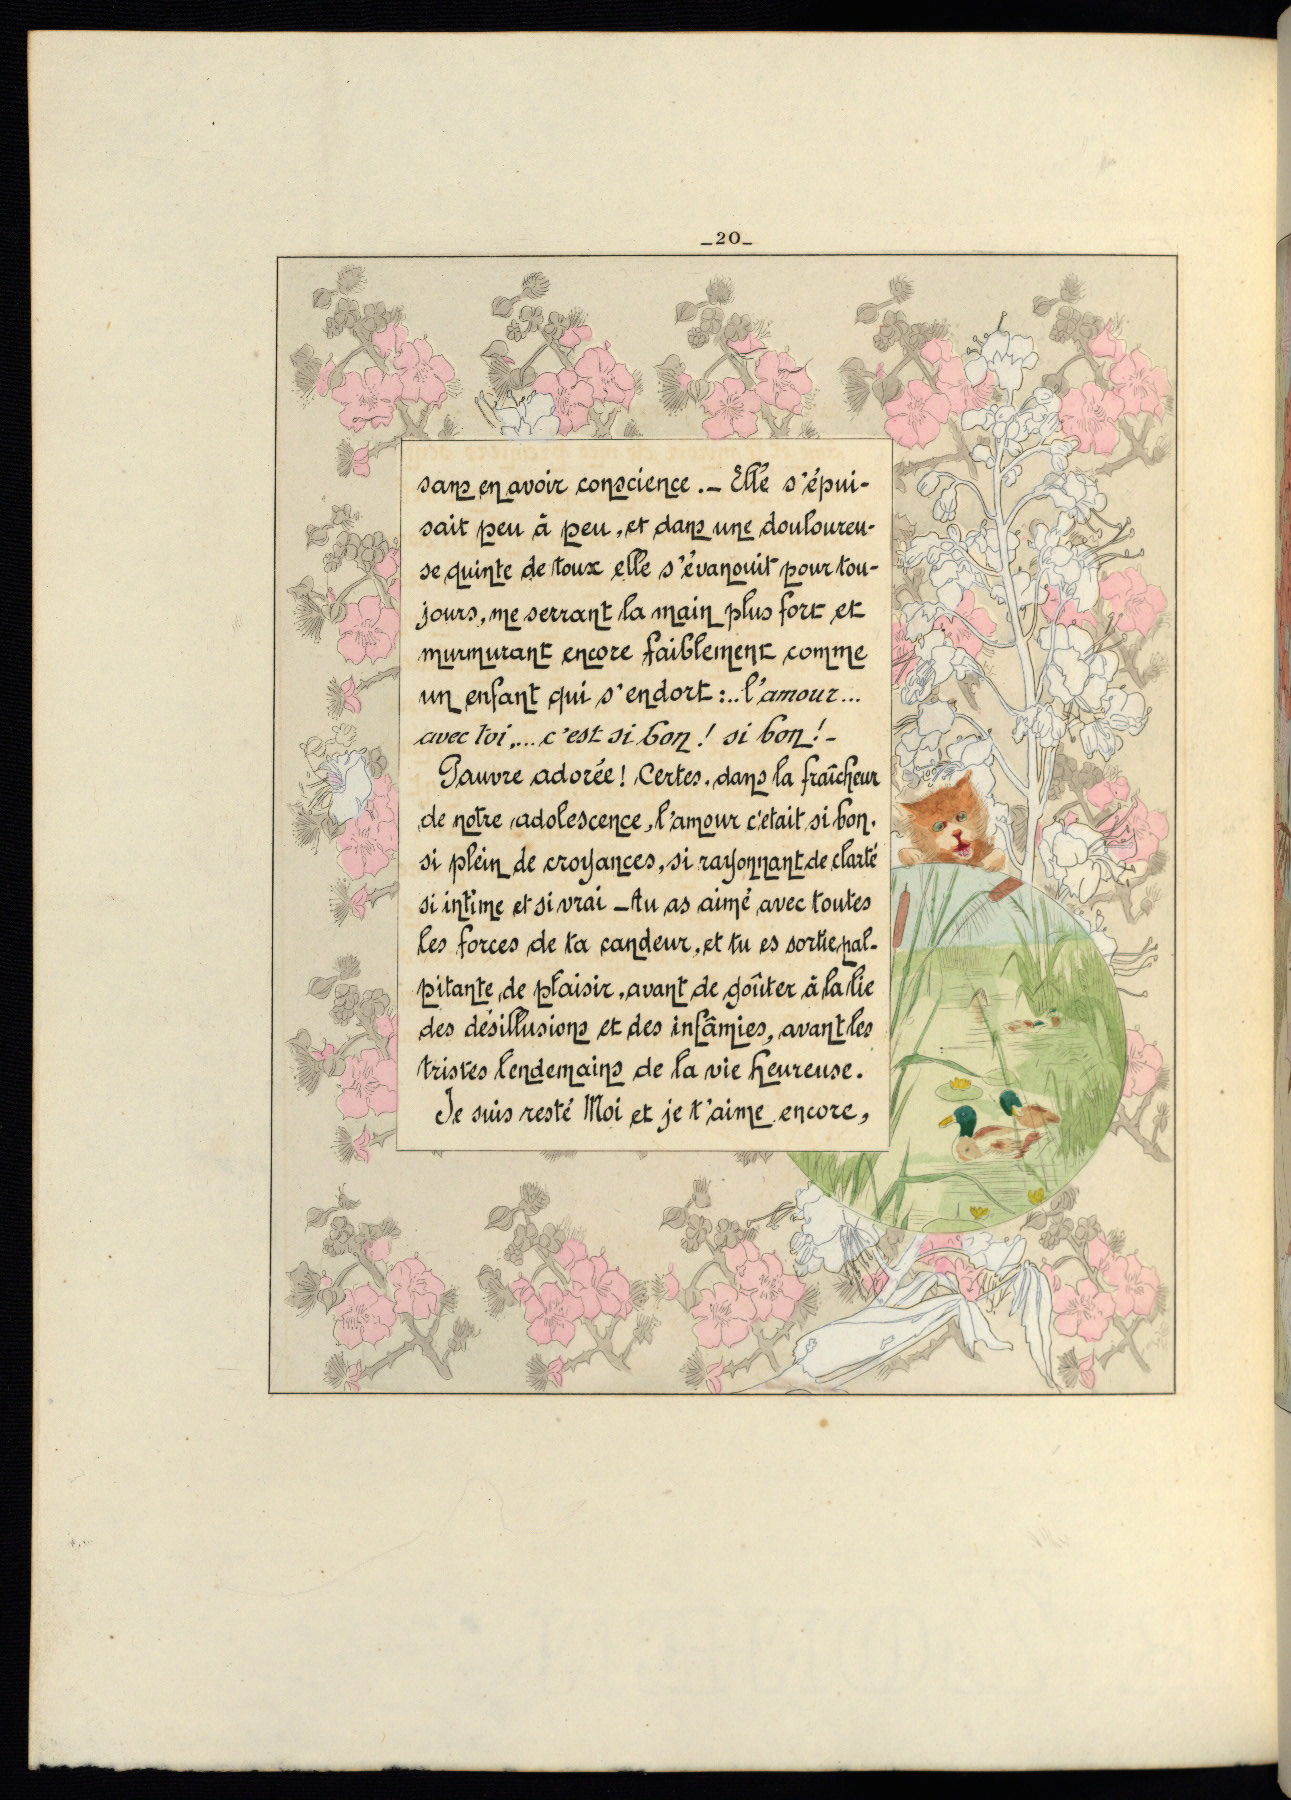 _20_
sans en avoir conscience._ Elle s'épui-
sait peu à peu, et dans une douloureu-
se quinte de toux elle s'évanouit pour tou-
jours, me serrant la main plus fort et
murmurant encore faiblement comme
un enfant qui s'endort :.. l'amour...
avec toi,... c'est si bon ! si bon !-
Pauvre adorée ! Certes, dans la fraîcheur
de notre adolescence, l'amour c'était si bon.
si plein de croyances, si rayonnant de clarté
si intime et si vrai _ tu as aimé avec toutes
les forces de ta candeur, et tu es sortie pal-
pitante de plaisir, avant de goûter à la lie
des désillusions et des infâmies, avant les
tristes lendemains de la vie heureuse.
Je suis resté Moi et je t'aime encore,